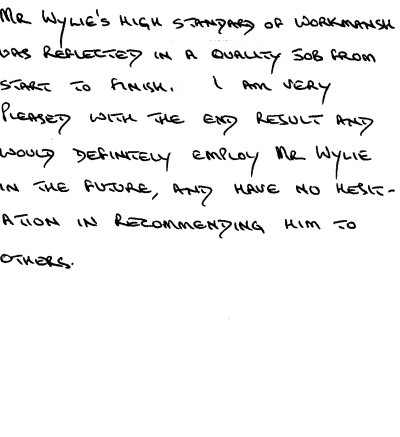 Mr Wylie's high standard of workmansh
was reflected in a quality job from
start to finish. I am very
pleased with the end result and
would definitely employ Mr Wylie
in the future, and have no hesit-
ation in recommending him to
others.